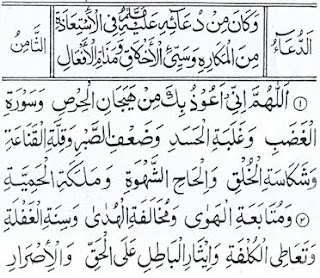 الدُّعَاءُ
وَكَانَ مِنْ دُعَائِهِ عَلَيْهِ السَّلَامُ فِي الْاِسْتِعَاذَةِ
مِنَ الْمَكَارِهِ وَسَيِّئِ الْاَخْلَاقِ وَمَذَامِّ الْاَفْعَالِ
الثَّامِنُ
(١) اَللّٰهُمَّ اِنِّىْ اَعُوْذُ بِكَ مِنْ هَيَجَانِ الْحِرْصِ وَسَوْرَةِ
الْغَضَبِ وَغَلَبَةِ الْحَسَدِ وَضَعْفِ الصَّبْرِ وَقِلَّةِ الْقَنَاعَةِ
وَشَكَاسَةِ الْخُلُقِ وَاِلْحَاحِ الشَّهْوَةِ وَمَلَكَةِ الْحَمِيَّةِ
(٢) وَمُتَابَعَةِ الْهَوٰى وَمُخَالَفَةِ الْهُدٰى وَسِنَةِ الْغَفْلَةِ
وَتَعَاطِى الْكُلْفَةِ وَاِيْثَارِ الْبَاطِلِ عَلَى الْحَقِّ وَالْاِصْرَارِ